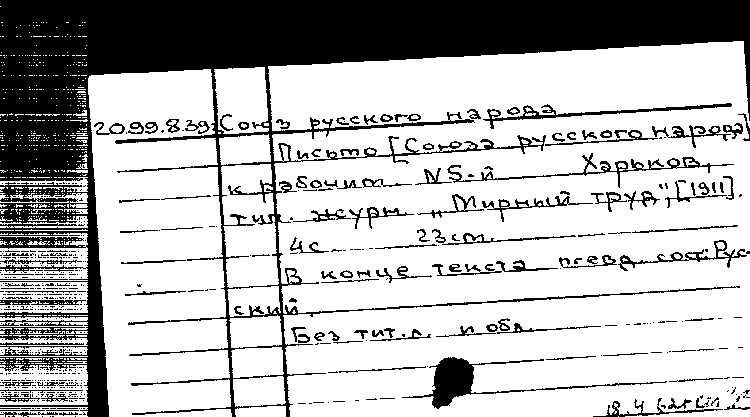 20.99.8.39: Союз русского народа
Письмо [Союза русского народа]
к рабочим. N5-й Харьков,
тип. журн. „Мирный труд", [1911].
4с. 23см.
В конце текста псевд. сост.: Рус-
ский.
Без тит.л. и обл.
18.4